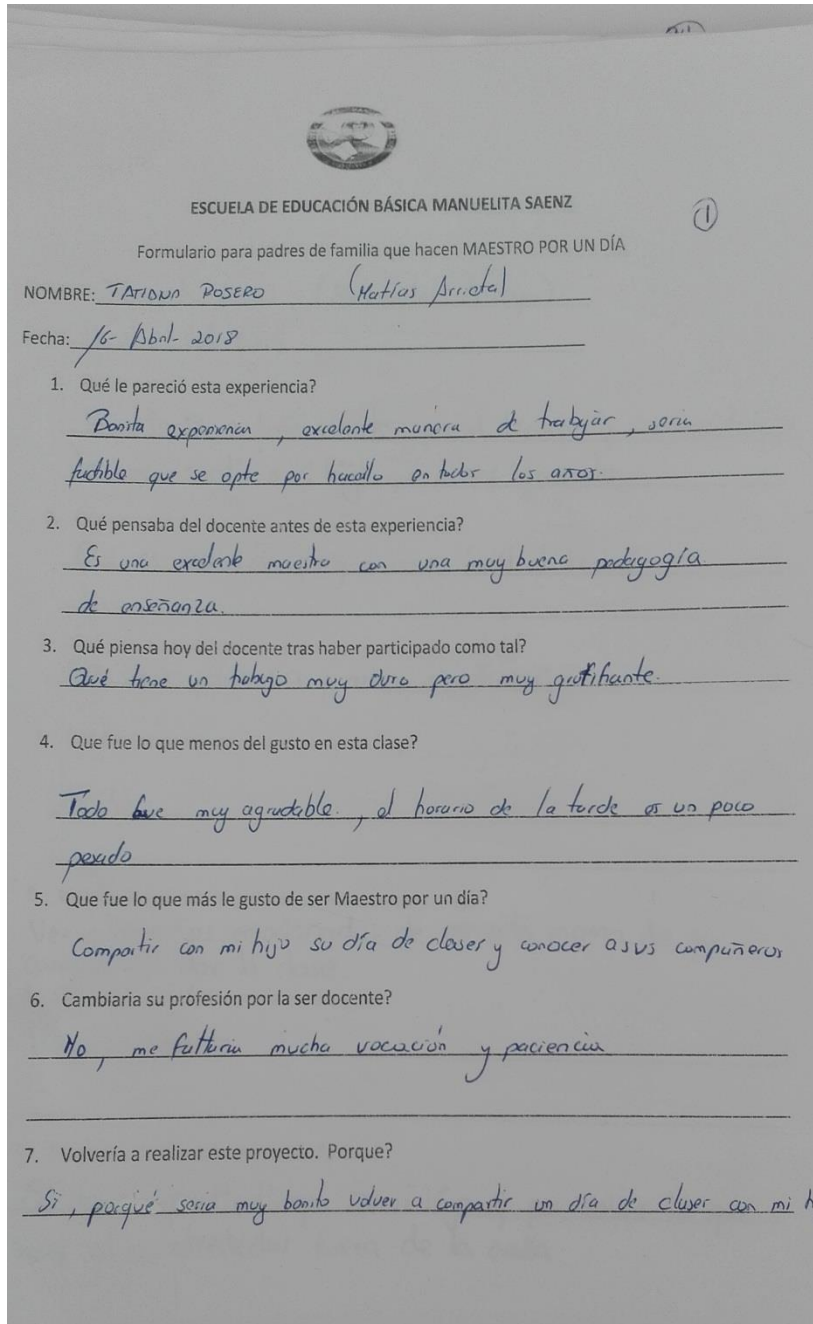 ESCUELA DE EDUCACIÓN BÁSICA MANUELITA SAENZ
1
Formulario para padres de familia que hacen MAESTRO POR UN DÍA
NOMBRE: TATIANA POSERO (Matías Arrieta)
Fecha: 16- Abril- 2018
1. Qué le pareció esta experiencia?
Bonita experiencia, excelente manera de trabajar, seria
factible que se opte por hacerlo en todos los años.
2. Qué pensaba del docente antes de esta experiencia?
Es una excelente maestra con una muy buena pedagogía
de enseñanza.
3. Qué piensa hoy del docente tras haber participado como tal?
Qué tiene un trabajo muy duro pero muy gratifiante.
4. Que fue lo que menos del gusto en esta clase?
Todo fue muy agradable., el horario de la tarde es un poco
pesado
5. Que fue lo que más le gusto de ser Maestro por un día?
Compartir con mi hijo su día de clases y conocer a sus compañeros
6. Cambiaria su profesión por la ser docente?
No, me faltaria mucha vocación y paciencia
7. Volvería a realizar este proyecto. Porque?
Si, porqué seria muy bonito volver a compartir un día de clases con mi h